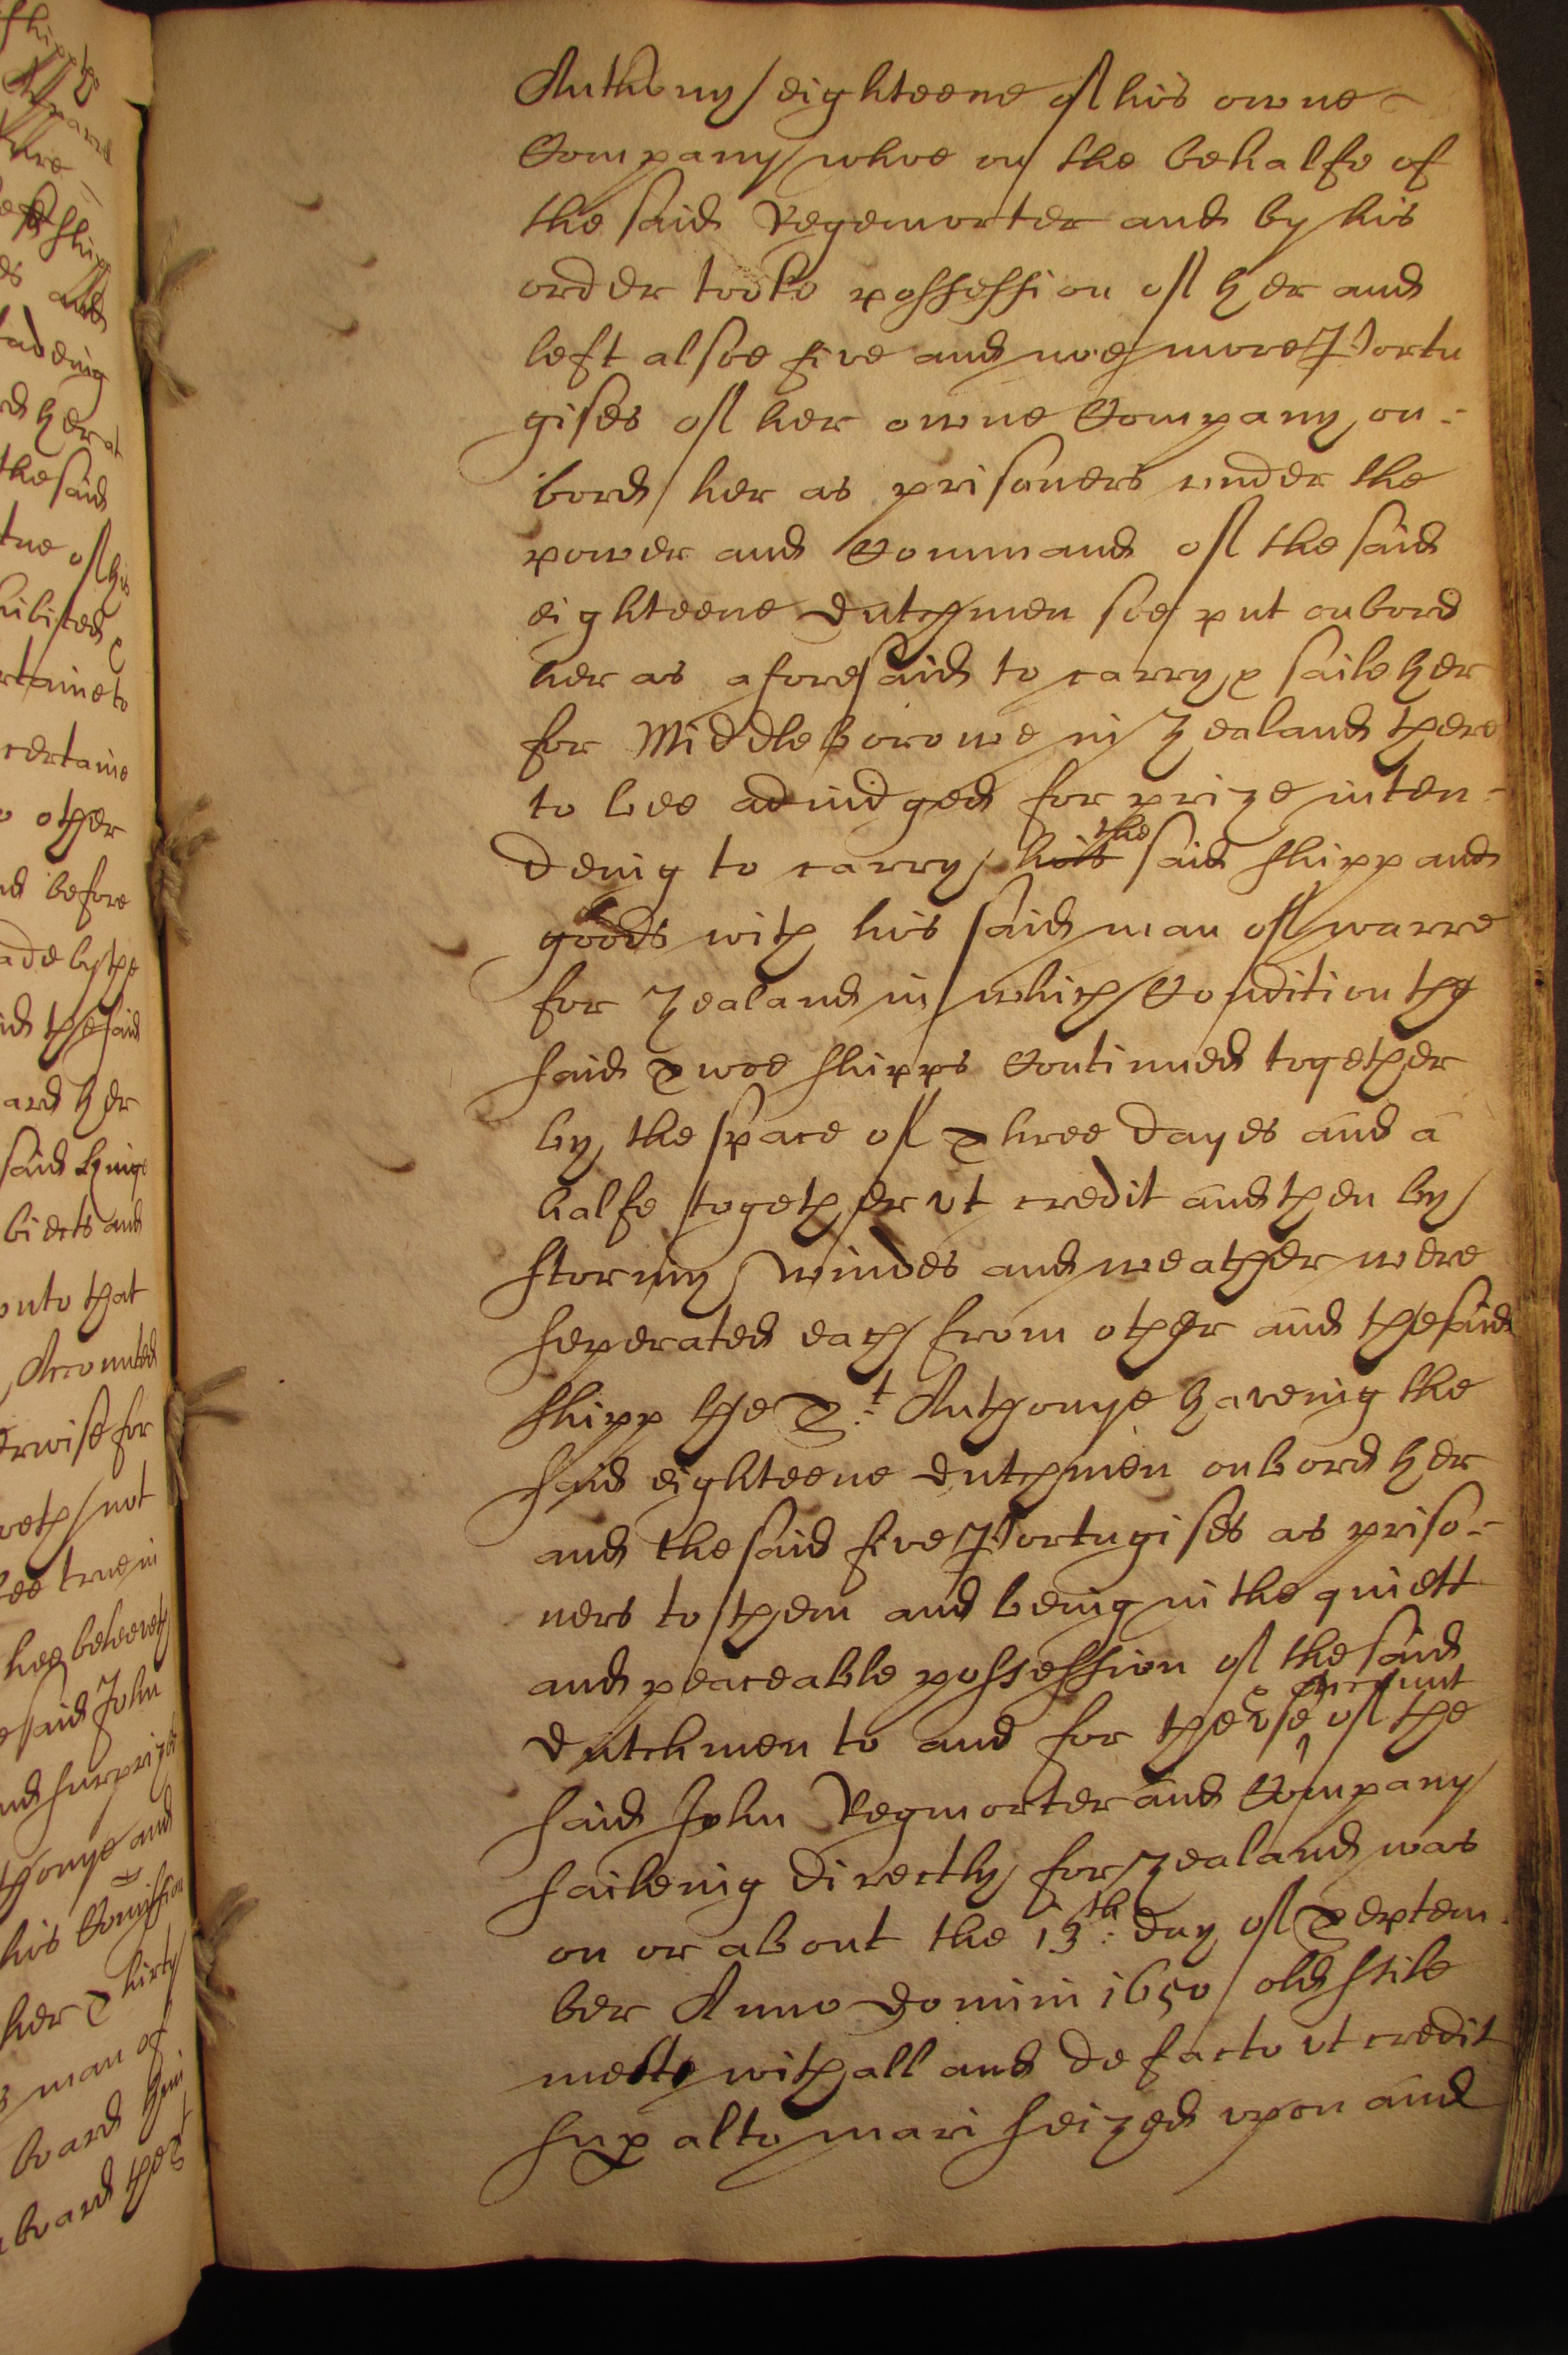 Anthony eighteene of his owne
Company whoe on the behalfe of
the said Regemorter and by his
order tooke possession of her and
left alsoe five and noe more Portu
gises of her owne Company on-
bord her as prisoners under the
power and Command of the said
eighteene dutchmen soe put onbord
her as aforesaid to carry & saile her
for Middleborowe in Zealand there
to bee adiudged for prize inten-
deing to carry his the said shipp and
goods with his said man of warre
for Zealand in which Condition the
said Two shipps Continued together
by the space of Three dayes and a
halfe together vt credit and then by
stormy windes and weather were
seperated each from other and the said
shipp the St Anthonye haveing the
said eighteene dutchmen onbord her
and the said five Portugises as priso-
ners to them and being in the quiett
and peaceable possession of the said
dutchmen to and for the vse & Account of the
said John Regmorter and Company
saileing directly for Zealand was
on or about the 13th: day of Septem-
ber Anno domini 1650 old stile
mette withall and de facto vt credit
sup alto mari seized vpon and
other
and before
ade by the
the said
ard her
biects and
vnto that
Accounted
not
hee beleeveth
said John
and surprized
his Comission
man of